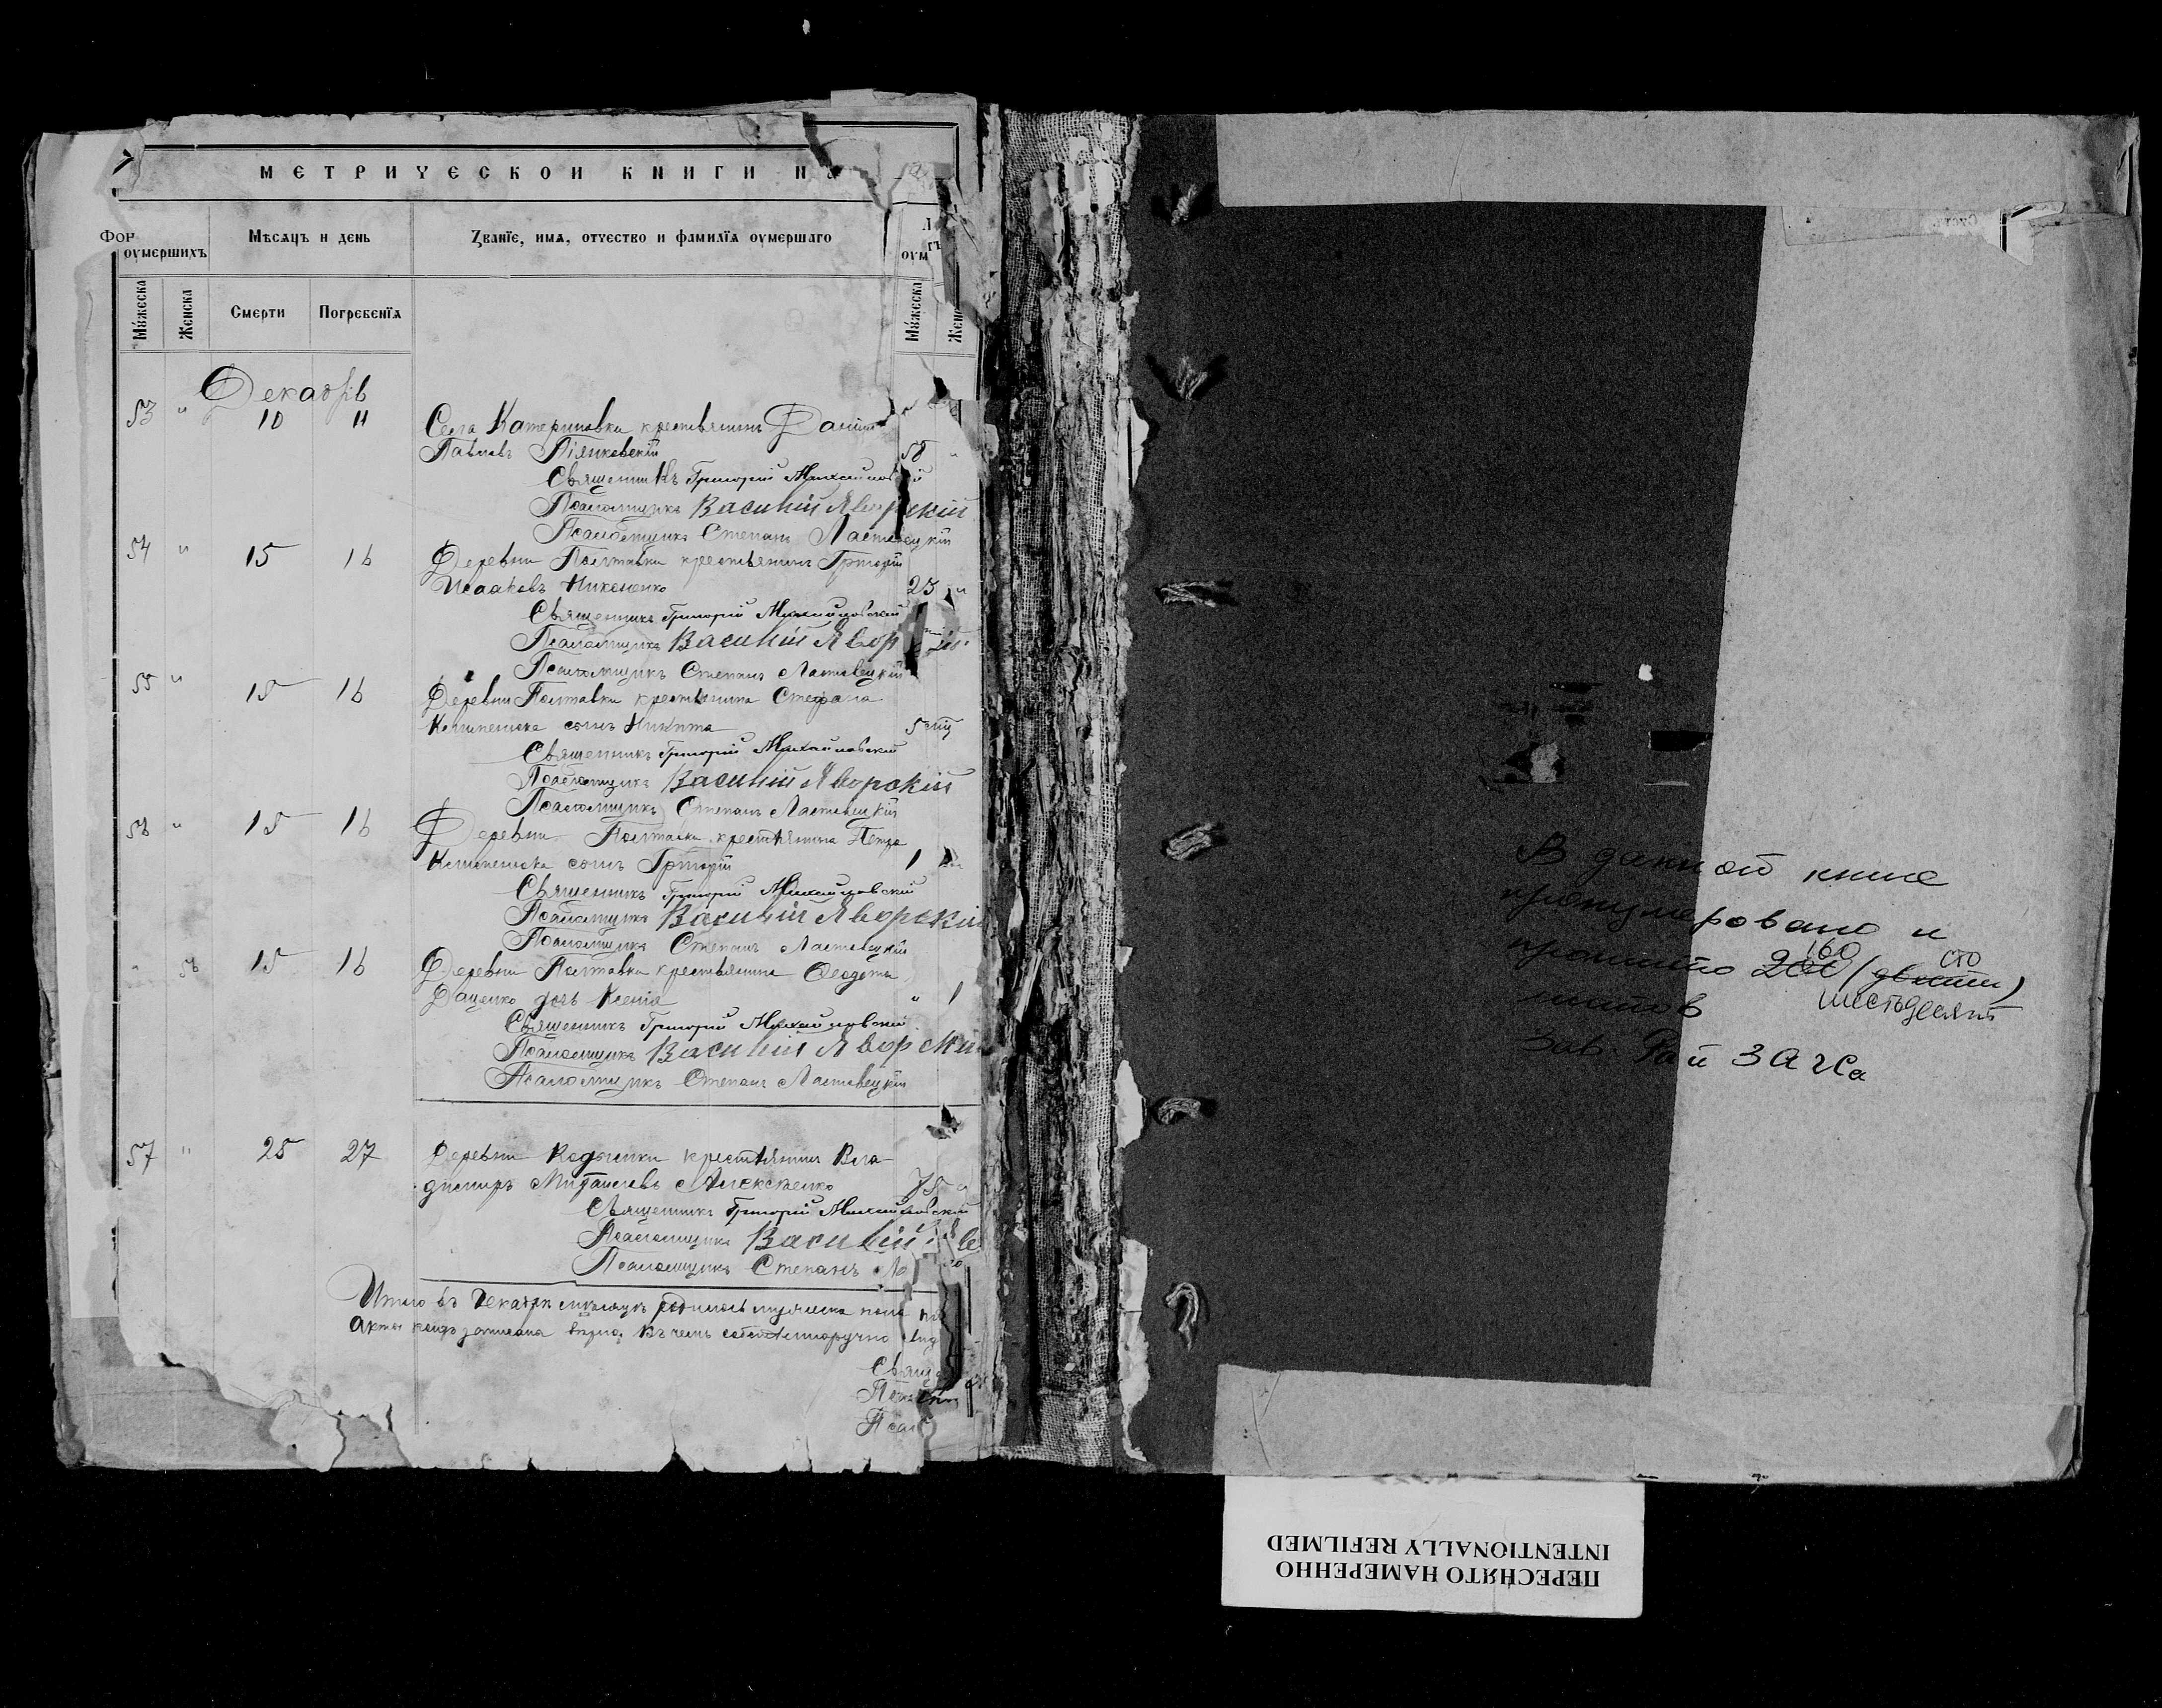 МЕТРИЧЕСКОЙ КНИГИ НА
оумершихъ
Мѣсяцъ и день
Званїе, имя, отчество и фамилїя оумершаго
Мужеска
Женска
Смерти
Погребенїя
Мужеска
Декабрь
53 " 10 11 Села Катериновки крестьянинъ
Павловъ 58 "
Священникъ Григорій Михайловскій
Псаломщикъ Василій Яворскій
Псаломщикъ Степанъ Ластовецкій
54 " 15 16 Деревни Полтавки крестьянинъ Григорій
Исааковъ Никоненко 23 "
Священникъ Григорій Михайловскій
Псаломщикъ Василій Явор
Псаломщикъ Степанъ Ластовецкій
55 " 15 16 Деревни Полтавки крестьянина Стефана
сынъ Никита
Священникъ Григорій Михайловскій
Псаломщикъ Василій Яворскій
Псаломщикъ Степанъ Ластовецкій
56 " 15 16 Деревни Полтавки крестьянина Петра
сынъ Григорій 1
Священникъ Григорій Михайловскій
Псаломщикъ Василій Яворскій
Псаломщикъ Степанъ Ластовецкій
" 56 15 16 Деревни Полтавки крестьянина Ѳеодота
Даценко дочь Ксенія " 1
Священникъ Григорій Михайловскій
Псаломщикъ Василій Яворскій
Псаломщикъ Степанъ Ластовецкій
57 " 25 27 Деревни крестьянинъ Вла-
димиръ Алексѣенко 75 "
Священникъ Григорій Михайловскій
Псаломщикъ Василій
Псаломщикъ Степанъ
Итого въ Декабрѣ мѣсяцѣ мужеска пола
записана вѣрно, въ чемъ собственноручно
Свящ
Псал
В данной книге
пронумеровано и
160 сто
прошито 200 (двести)
листов шестьдесят
Зав. Рай ЗАГСа
ПЕРЕСНЯТО НАМЕРЕННО
INTENTIONALLY REFILMED